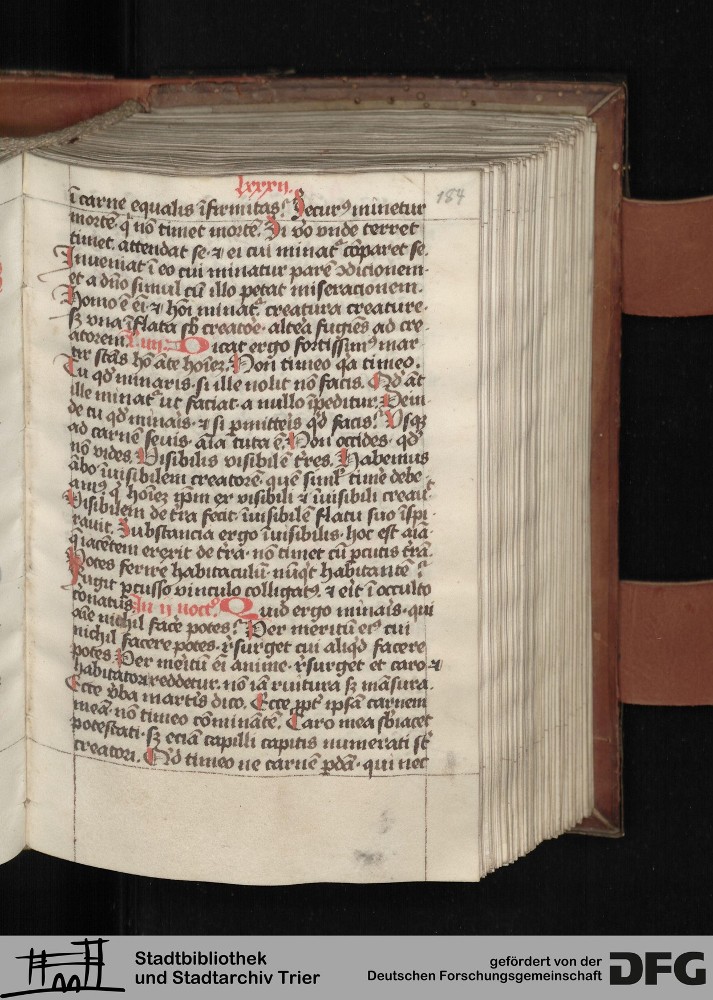 lxxxii.
184
ī carne equalis īfirmitas? Securꝰ minetur
mortē. q̇ nō timet mortē. Si v̊o vnde terret
timet. attendat se. ⁊ ei cui minat᷑ cōparet se.
Inueniat ī eo cui minatur parē ꝯdicionem.
et a dño simul cū illo petat miseracionem.
Homo ē ei᷑ ⁊ hoī minat᷑. creatura creature.
sꝫ vna īflata sb̄ creatoē. altēa fugiēs ad cre
atorem. Dicat ergo fortissimꝰ mar
tir stās hō āte hoīeꝫ. Non timeo qa timeo.
Tu qd̄ minaris. si ille nolit nō facis. Qd̄ āt
ille minat᷑ ut faciat. a nullo īpeditur. Dein
de tu qd̄ minais. ⁊ si pmitteīs qd̄ facis? Vsqꝫ
ad carnē seuis. aīa tuta ē. Non occides. qd̄
nō vides. Visibilis visibilē t̄res. Habemus
ābo īuisibilem creatorē. quē simł timē debe
amꝰ. q̇ hoīeꝫ ip̄m ex visibili ⁊ īuisibili creaūt.
Visibilem de tr̄a fecit. īuisibilē flatu suo īspi
rauit. Substancia ergo īuisibilis. hoc est aīa.
q̄ iacētem erexit de tr̄a. nō timet cū ꝑcutis tr̄ā.
Potes ferire habitaculū. nūq̇t habitantē?
Fugit ꝑcusso vinculo colligatꝰ. ⁊ eīt ī occulto
coronatus. In ij nocꝰ. Quid ergo minais. qui
aīe nichil facē potes? Per meritū eiꝰ cui
nichil facere potes. r̄surget cui aliqd̄ facere
potes. Per meītū ei᷑ anime. r̄surget et caro. ⁊
habitatori reddetur. nō iā ruitura sꝫ māsura.
Ecce v̄ba martīs dico. Ecce ꝓpt᷑ ipsā carnem
meā. nō timeo cōminātē. Caro mea sb̄iacet
potestati. sꝫ eciā capilli capitis numerati st̄
creatori. Qd̄ timeo ne carnē ꝑdā. qui nec
Stadtbibliothek
und Stadtarchiv Trier
gefördert von der
Deutschen Forschungsgemeinschaft
DFG